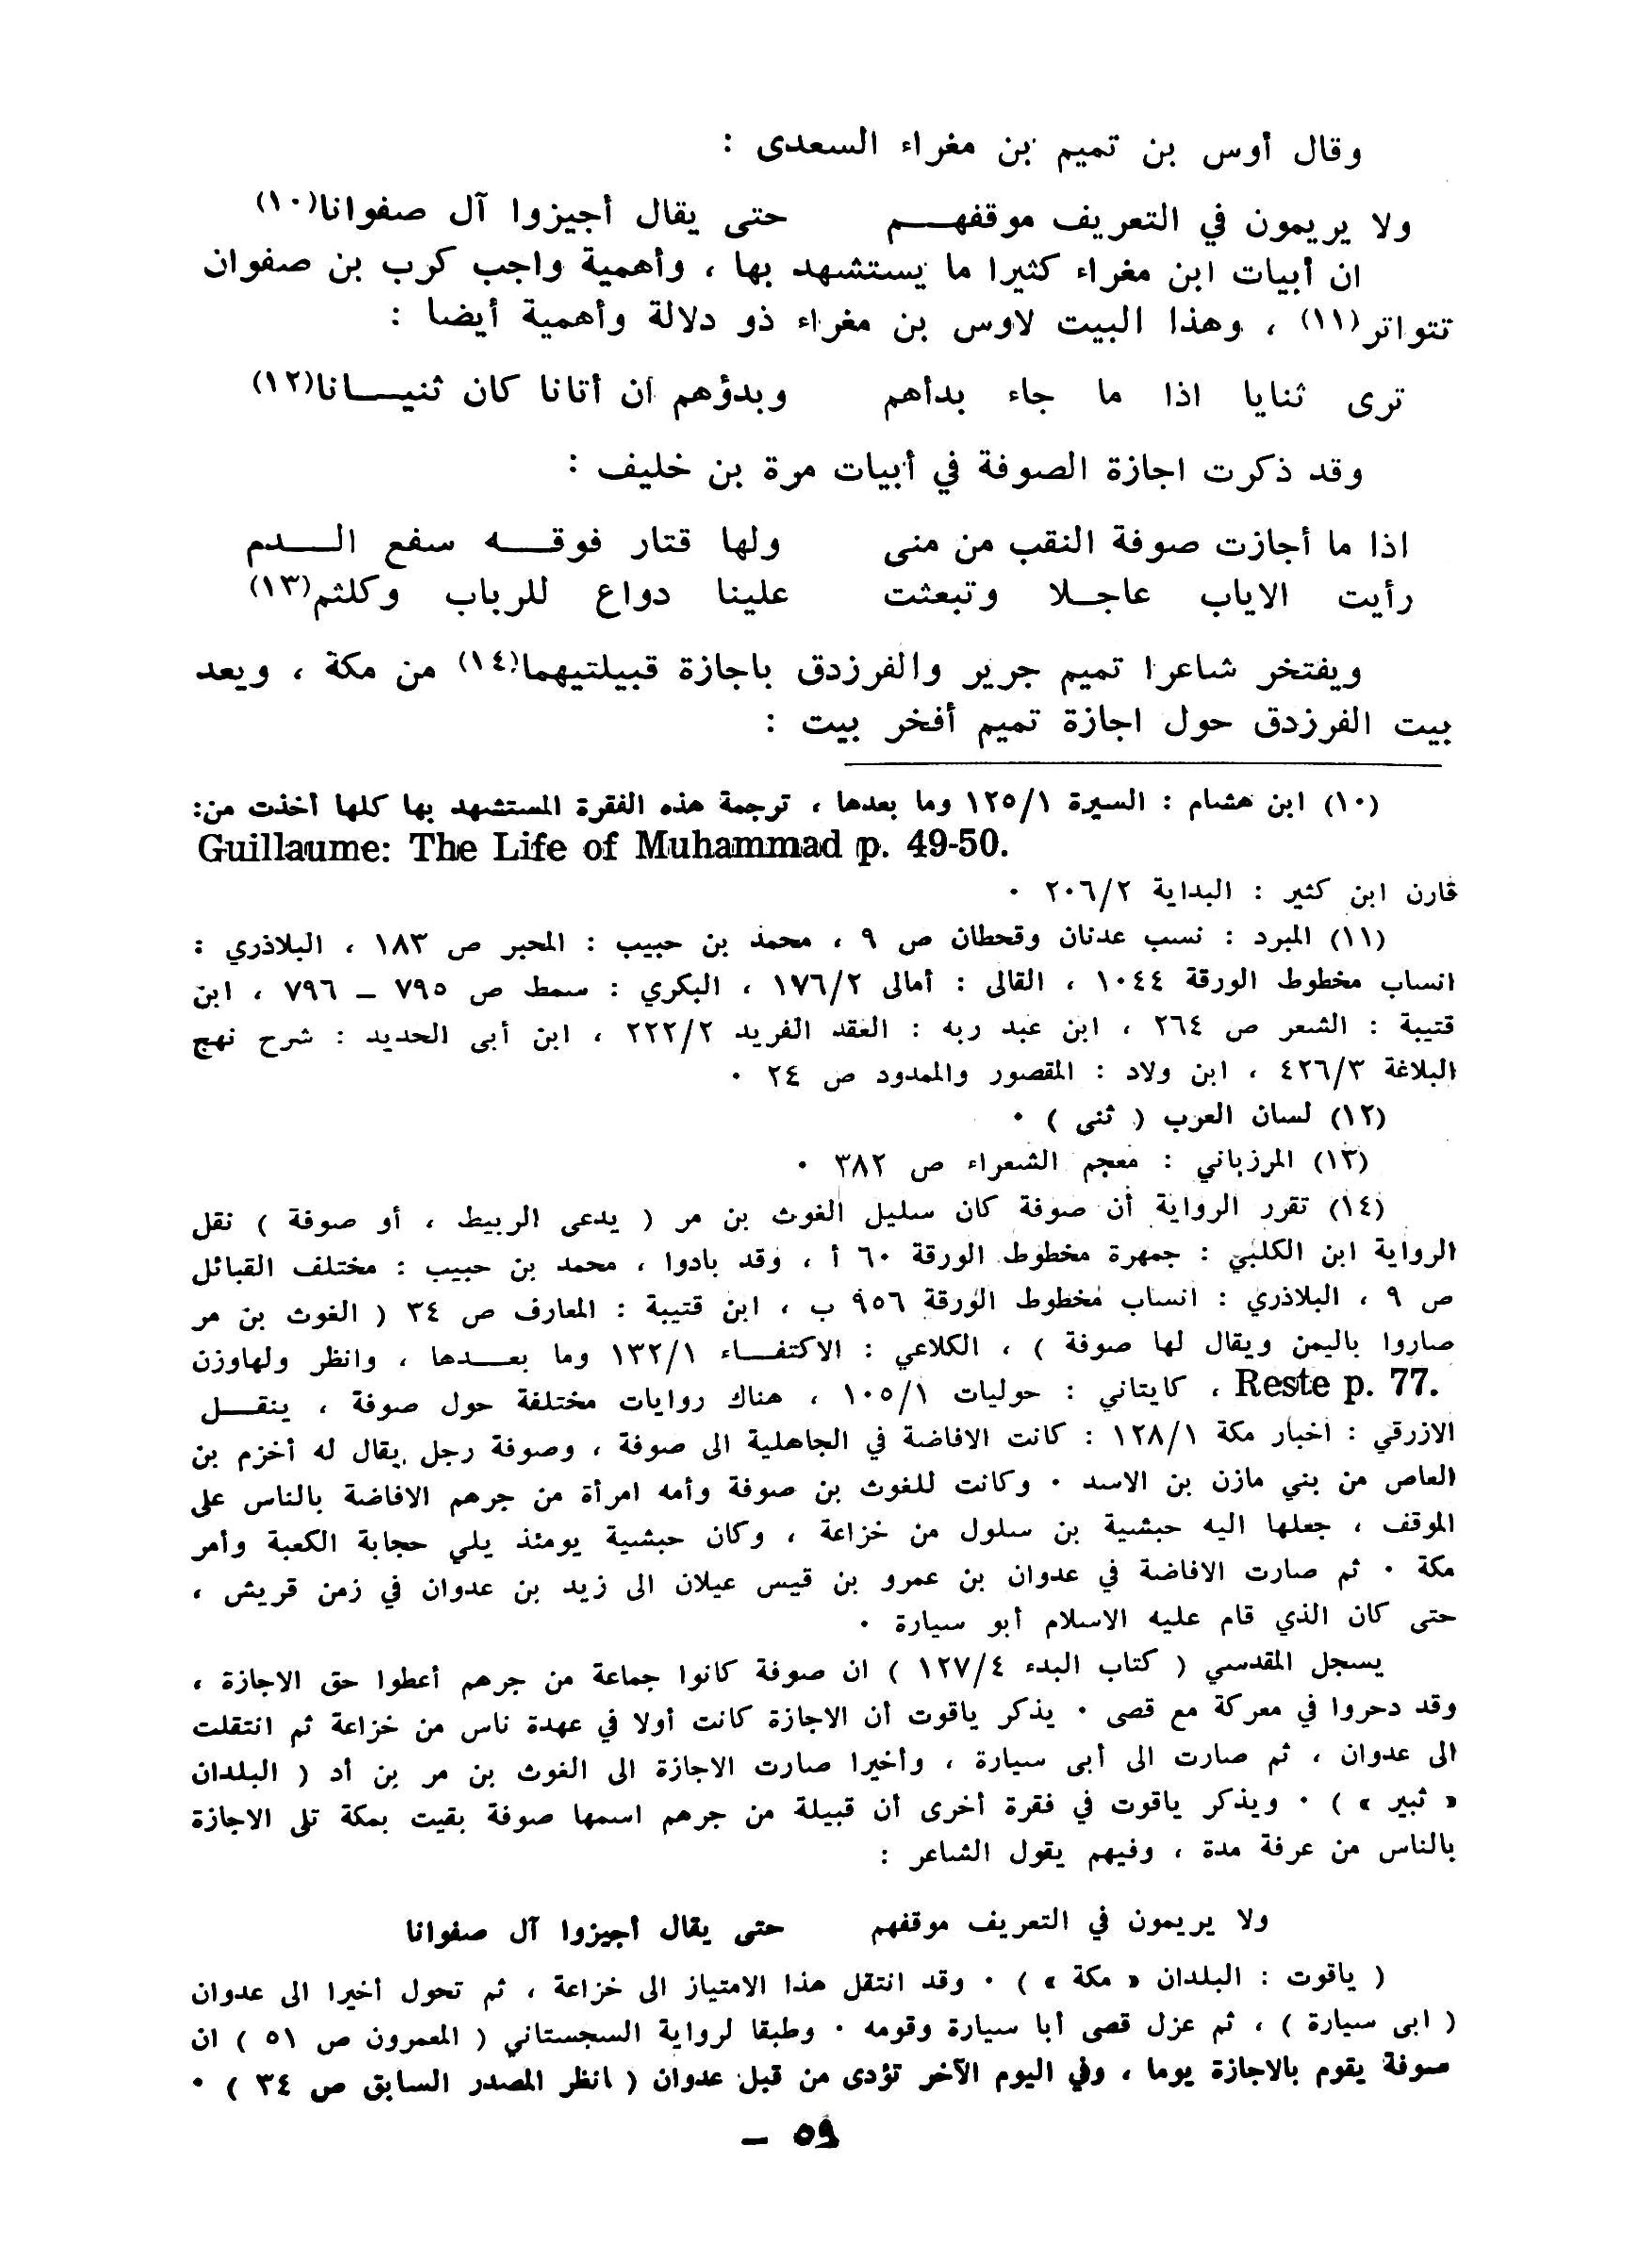 وقال أوس بن تميم بن مغراء السعدى :
ولا يريمون في التعريف موقفهم حتى يقال أجيزوا آل صفوانا(١٠)
ان أبيات ابن مغراء كثيرا ما يستشهد بها ، وأهمية واجب كرب بن صفوان
تتواتر(١١) ، وهذا البيت لاوس بن مغراء ذو دلالة وأهمية أيضا :
ترى ثنايا اذا ما جاء بدأهم وبدؤهم ان أتانا كان ثنيانا(١٢)
وقد ذكرت اجازة الصوفة في أبيات مرة بن خليف :
اذا ما أجازت صوفة النقب من منى ولها قتار فوقه سفع الدم
رأيت الاياب عاجلا وتبعثت علينا دواع للرباب وكلثم(١٣)
ويفتخر شاعرا تميم جرير والفرزدق باجازة قبيلتيهما(١٤) من مكة ، ويعد
بيت الفرزدق حول اجازة تميم أفخر بيت :
(١٠) ابن هشام : السيرة ١٢٥/١ وما بعدها ، ترجمة هذه الفقرة المستشهد بها كلها أخذت من:
Guillaume: The Life of Muhammad p. 49-50.
قارن ابن كثير : البداية ٢٠٦/٢ .
(١١) المبرد : نسب عدنان وقحطان ص ٩ ، محمد بن حبيب : المحبر ص ١٨٣ ، البلاذري :
انساب مخطوط الورقة ١٠٤٤ ، القالى : أمالى ١٧٦/٢ ، البكري : سمط ص ٧٩٥ – ٧٩٦ ، ابن
قتيبة : الشعر ص ٢٦٤ ، ابن عبد ربه : العقد الفريد ٢٢٢/٢ ، ابن أبى الحديد : شرح نهج
البلاغة ٤٢٦/٣ ، ابن ولاد : المقصور والممدود ص ٢٤ .
(١٢) لسان العرب ( ثنى ) .
(١٣) المرزباني : معجم الشعراء ص ٣٨٢ .
(١٤) تقرر الرواية أن صوفة كان سليل الغوث بن مر ( يدعى الربيط ، أو صوفة ) نقل
الرواية ابن الكلبي : جمهرة مخطوط الورقة ٦٠ أ ، وقد بادوا ، محمد بن حبيب : مختلف القبائل
ص ٩ ، البلاذري : انساب مخطوط الورقة ٩٥٦ ب ، ابن قتيبة : المعارف ص ٣٤ ( الغوث بن مر
صاروا باليمن ويقال لها صوفة ) ، الكلاعي : الاكتفاء ١٣٢/١ وما بعدها ، وانظر ولهاوزن
Reste p. 77. ، كايتاني : حوليات ١٠٥/١ ، هناك روايات مختلفة حول صوفة ، ينقل
الازرقي : أخبار مكة ١٢٨/١ : كانت الافاضة في الجاهلية الى صوفة ، وصوفة رجل يقال له أخزم بن
العاص من بني مازن بن الاسد . وكانت للغوث بن صوفة وأمه امرأة من جرهم الافاضة بالناس على
الموقف ، جعلها اليه حبشية بن سلول من خزاعة ، وكان حبشية يومئذ يلي حجابة الكعبة وأمر
مكة . ثم صارت الافاضة في عدوان بن عمرو بن قيس عيلان الى زيد بن عدوان في زمن قريش ،
حتى كان الذي قام عليه الاسلام أبو سيارة .
يسجل المقدسي ( كتاب البدء ١٢٧/٤ ) ان صوفة كانوا جماعة من جرهم أعطوا حق الاجازة ،
وقد دحروا في معركة مع قصى . يذكر ياقوت أن الاجازة كانت أولا في عهدة ناس من خزاعة ثم انتقلت
الى عدوان ، ثم صارت الى أبى سيارة ، وأخيرا صارت الاجازة الى الغوث بن مر بن أد ( البلدان
« ثبير » ) . ويذكر ياقوت في فقرة أخرى أن قبيلة من جرهم اسمها صوفة بقيت بمكة تلى الاجازة
بالناس من عرفة مدة ، وفيهم يقول الشاعر :
ولا يريمون في التعريف موقفهم حتى يقال أجيزوا آل صفوانا
( ياقوت : البلدان « مكة » ) . وقد انتقل هذا الامتياز الى خزاعة ، ثم تحول أخيرا الى عدوان
( ابى سيارة ) ، ثم عزل قصى أبا سيارة وقومه . وطبقا لرواية السجستاني ( المعمرون ص ٥١ ) ان
صوفة يقوم بالاجازة يوما ، وفي اليوم الآخر تؤدى من قبل عدوان ( انظر المصدر السابق ص ٣٤ ) .
٥٩ –